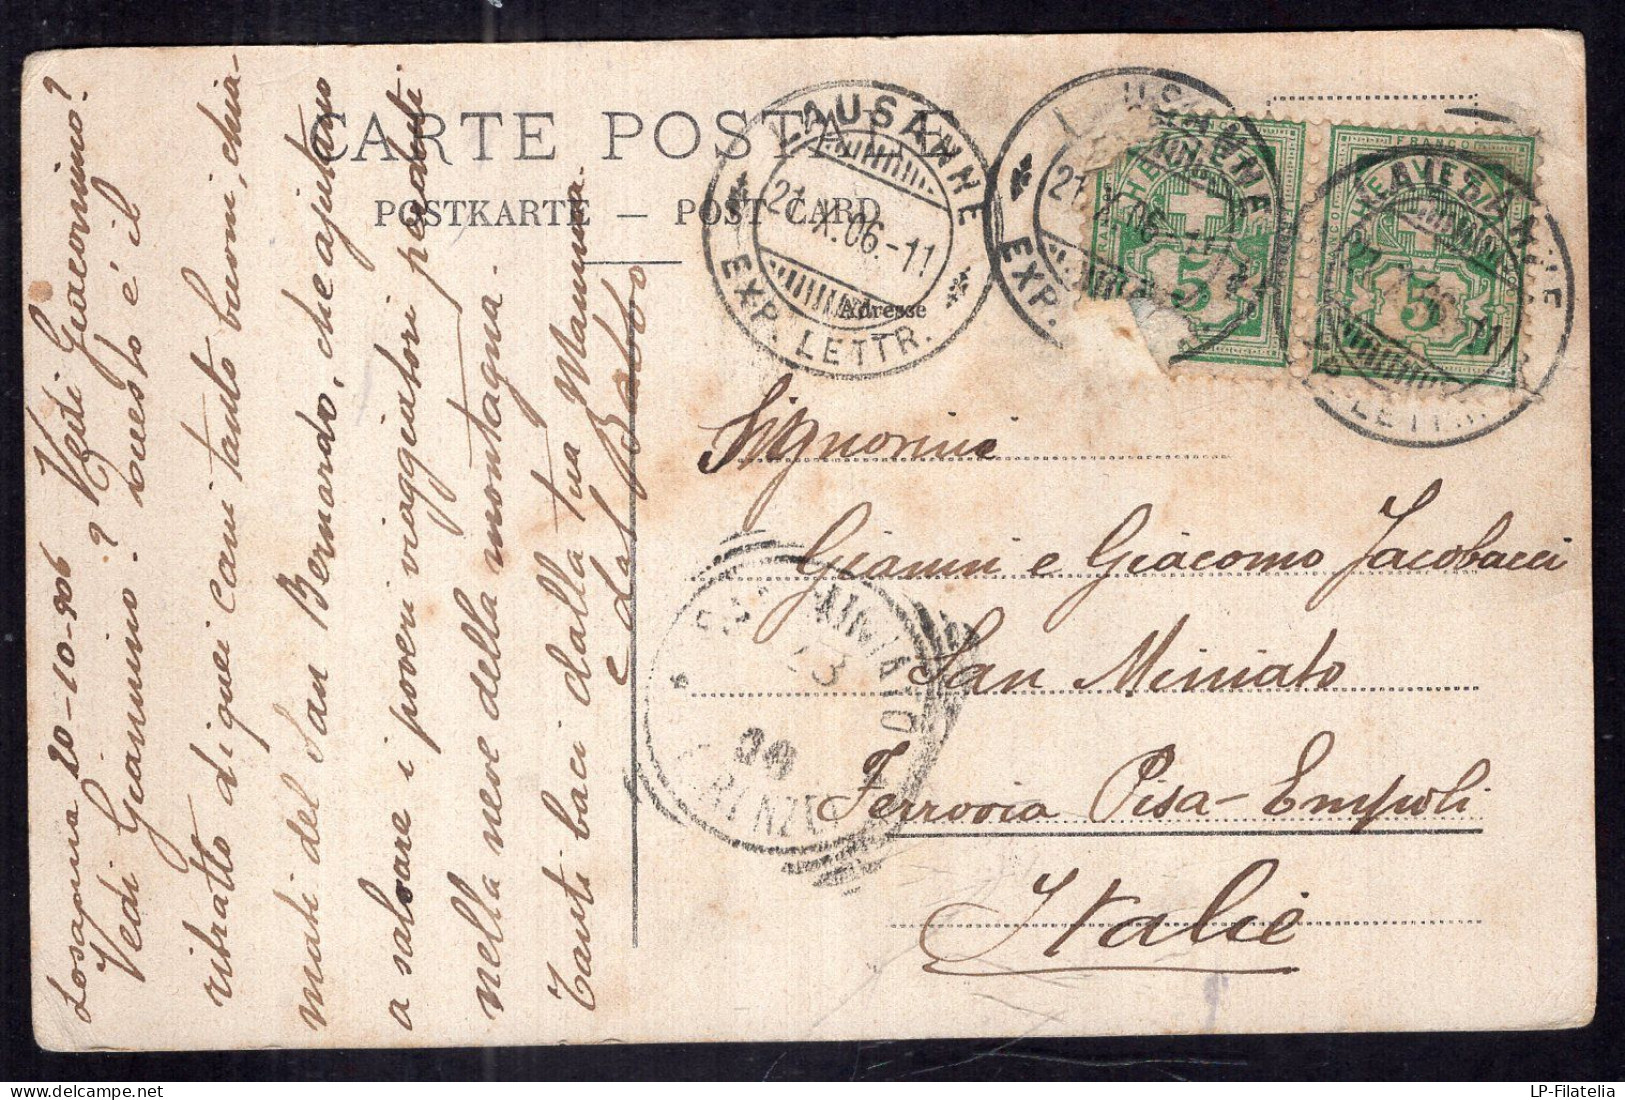 CARTE POSTALE
POSTKARTE — POST CARD
Adresse
LAUSANNE
21.X.06.-11
EXP. LETTR.
LAUSANNE
21.X.06.-11
EXP.
HELVETIA
FRANCO
5
5
21.X.06.-11
EXP. LETTR.
SAN MINIATO
23
06
FIRENZE
Losanna 20-10-906 Vedi Giacomino?
Vedi Giannino? Questo è il
ritratto di quei cani tanto buoni, chia-
mati del San Bernardo, che ajutano
a salvare i poveri viaggiatori perduti
nella neve della montagna.
Tanti baci dalla tua Mamma
e dal Babbo
Signorini
Gianni e Giacomo Jacobacci
San Miniato
Ferrovia Pisa-Empoli
Italie
LP-Filatelia